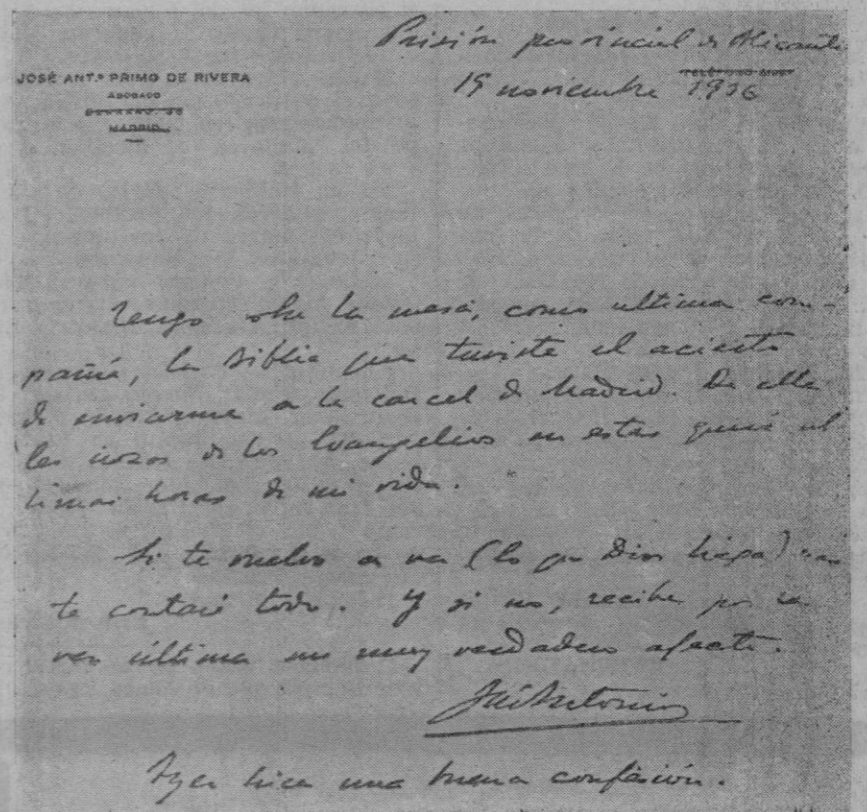 Prisión provincial de Alicante
JOSÉ ANT.º PRIMO DE RIVERA
ABOGADO
MADRID
19 noviembre 1936
Tengo sobre la mesa, como ultima com-
pañía, la Biblia que tuviste el acierto
de enviarme a la carcel de Madrid. De ella
leo trozos de los Evangelios en estas quizá úl
timas horas de mi vida.
Si te vuelvo a ver (lo que Dios haga)
te contaré todo. Y si no, recibe por
vez última mi muy verdadero afecto.
José Antonio
Ayer hice una buena confesión.